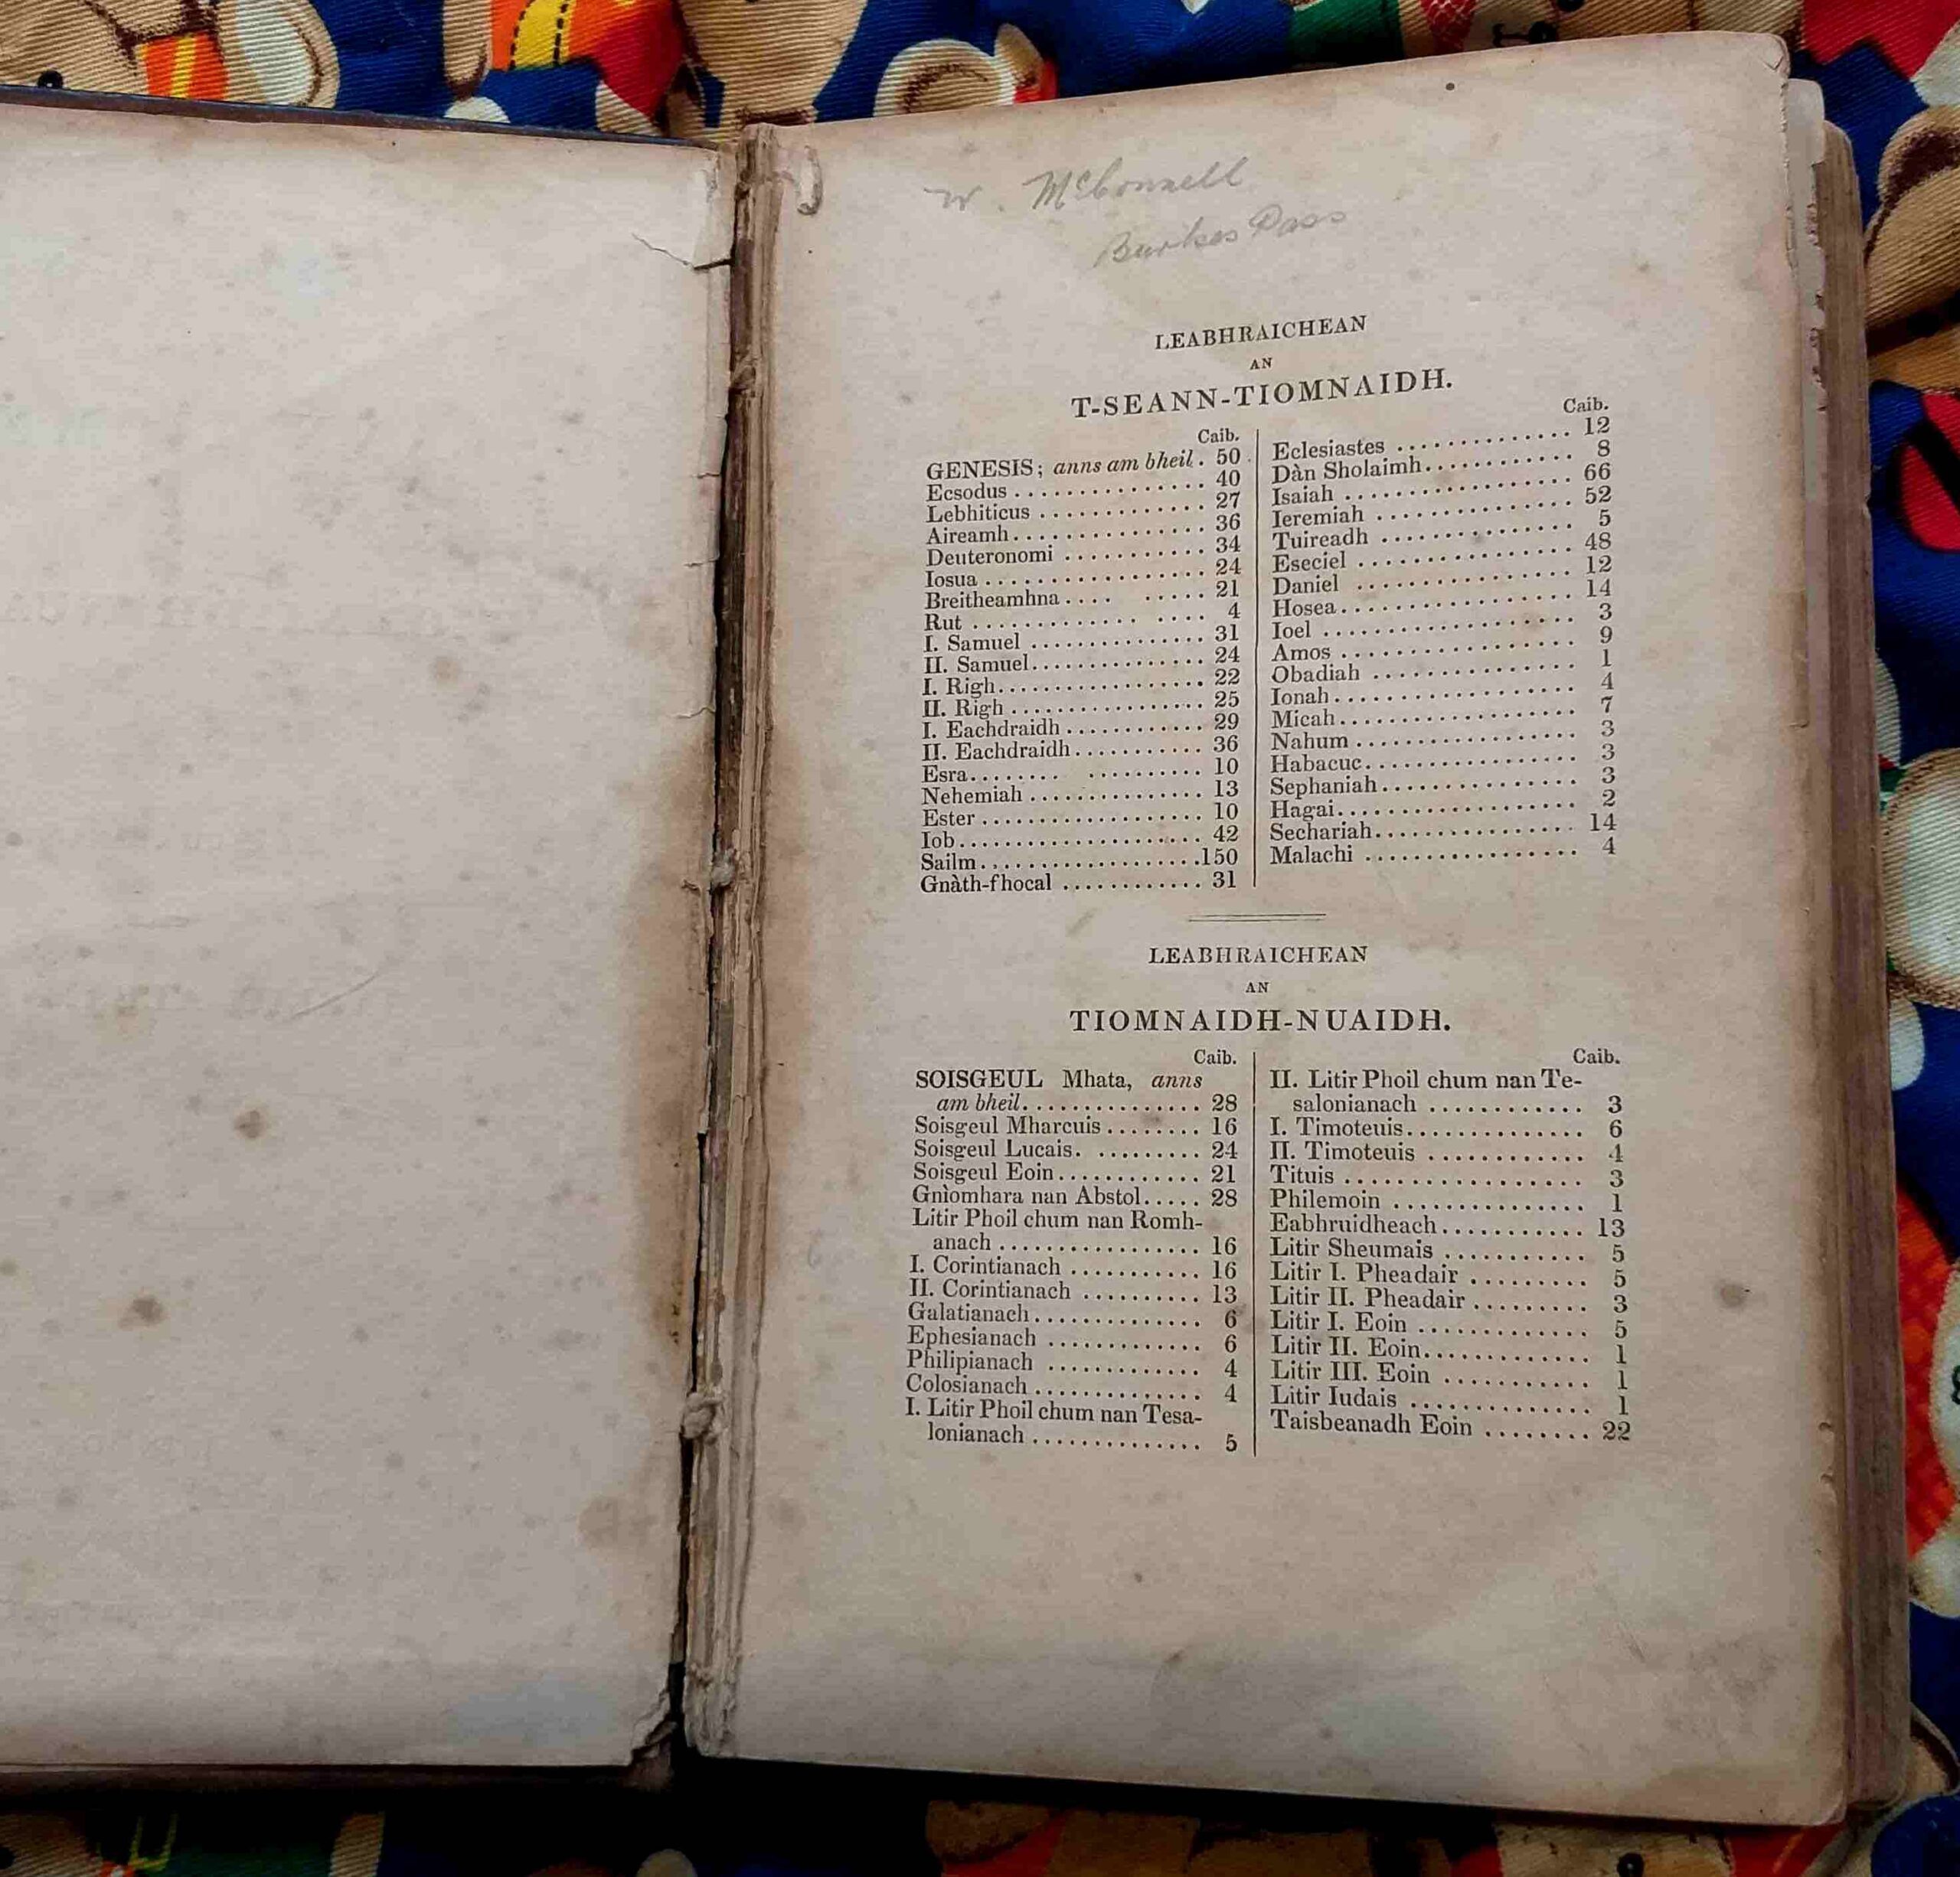 W. McConnell
Burkes Pass
LEABHRAICHEAN
AN
T-SEANN-TIOMNAIDH.
Caib.
GENESIS; anns am bheil. 50
Ecsodus ............... 40
Lebhiticus ............. 27
Aireamh............... 36
Deuteronomi ........... 34
Iosua .................. 24
Breitheamhna.... ..... 21
Rut .............. .... 4
I. Samuel .............. 31
II. Samuel............... 24
I. Righ.................. 22
II. Righ ................. 25
I. Eachdraidh ............ 29
II. Eachdraidh........... 36
Esra........ .......... 10
Nehemiah ............... 13
Ester .................... 10
Iob...................... 42
Sailm....................150
Gnàth-fhocal ............ 31
Caib.
Eclesiastes .............. 12
Dàn Sholaimh............ 8
Isaiah .................. 66
Ieremiah ............... 52
Tuireadh ............... 5
Eseciel ................. 48
Daniel ................. 12
Hosea.................. 14
Ioel .................... 3
Amos .................. 9
Obadiah ............... 1
Ionah................... 4
Micah................... 7
Nahum ................. 3
Habacuc................ 3
Sephaniah............... 3
Hagai................... 2
Sechariah................ 14
Malachi ................. 4
LEABHRAICHEAN
AN
TIOMNAIDH-NUAIDH.
Caib.
SOISGEUL Mhata, anns
am bheil............... 28
Soisgeul Mharcuis........ 16
Soisgeul Lucais. ......... 24
Soisgeul Eoin............ 21
Gnìomhara nan Abstol..... 28
Litir Phoil chum nan Romh-
anach ................. 16
I. Corintianach ........... 16
II. Corintianach .......... 13
Galatianach.............. 6
Ephesianach ............. 6
Philipianach ............. 4
Colosianach .............. 4
I. Litir Phoil chum nan Tesa-
lonianach .............. 5
Caib.
II. Litir Phoil chum nan Te-
salonianach ............ 3
I. Timoteuis.............. 6
II. Timoteuis ............ 4
Tituis .................. 3
Philemoin ............... 1
Eabhruidheach........... 13
Litir Sheumais ........... 5
Litir I. Pheadair ......... 5
Litir II. Pheadair ......... 3
Litir I. Eoin ............. 5
Litir II. Eoin............. 1
Litir III. Eoin ........... 1
Litir Iudais .............. 1
Taisbeanadh Eoin ........ 22